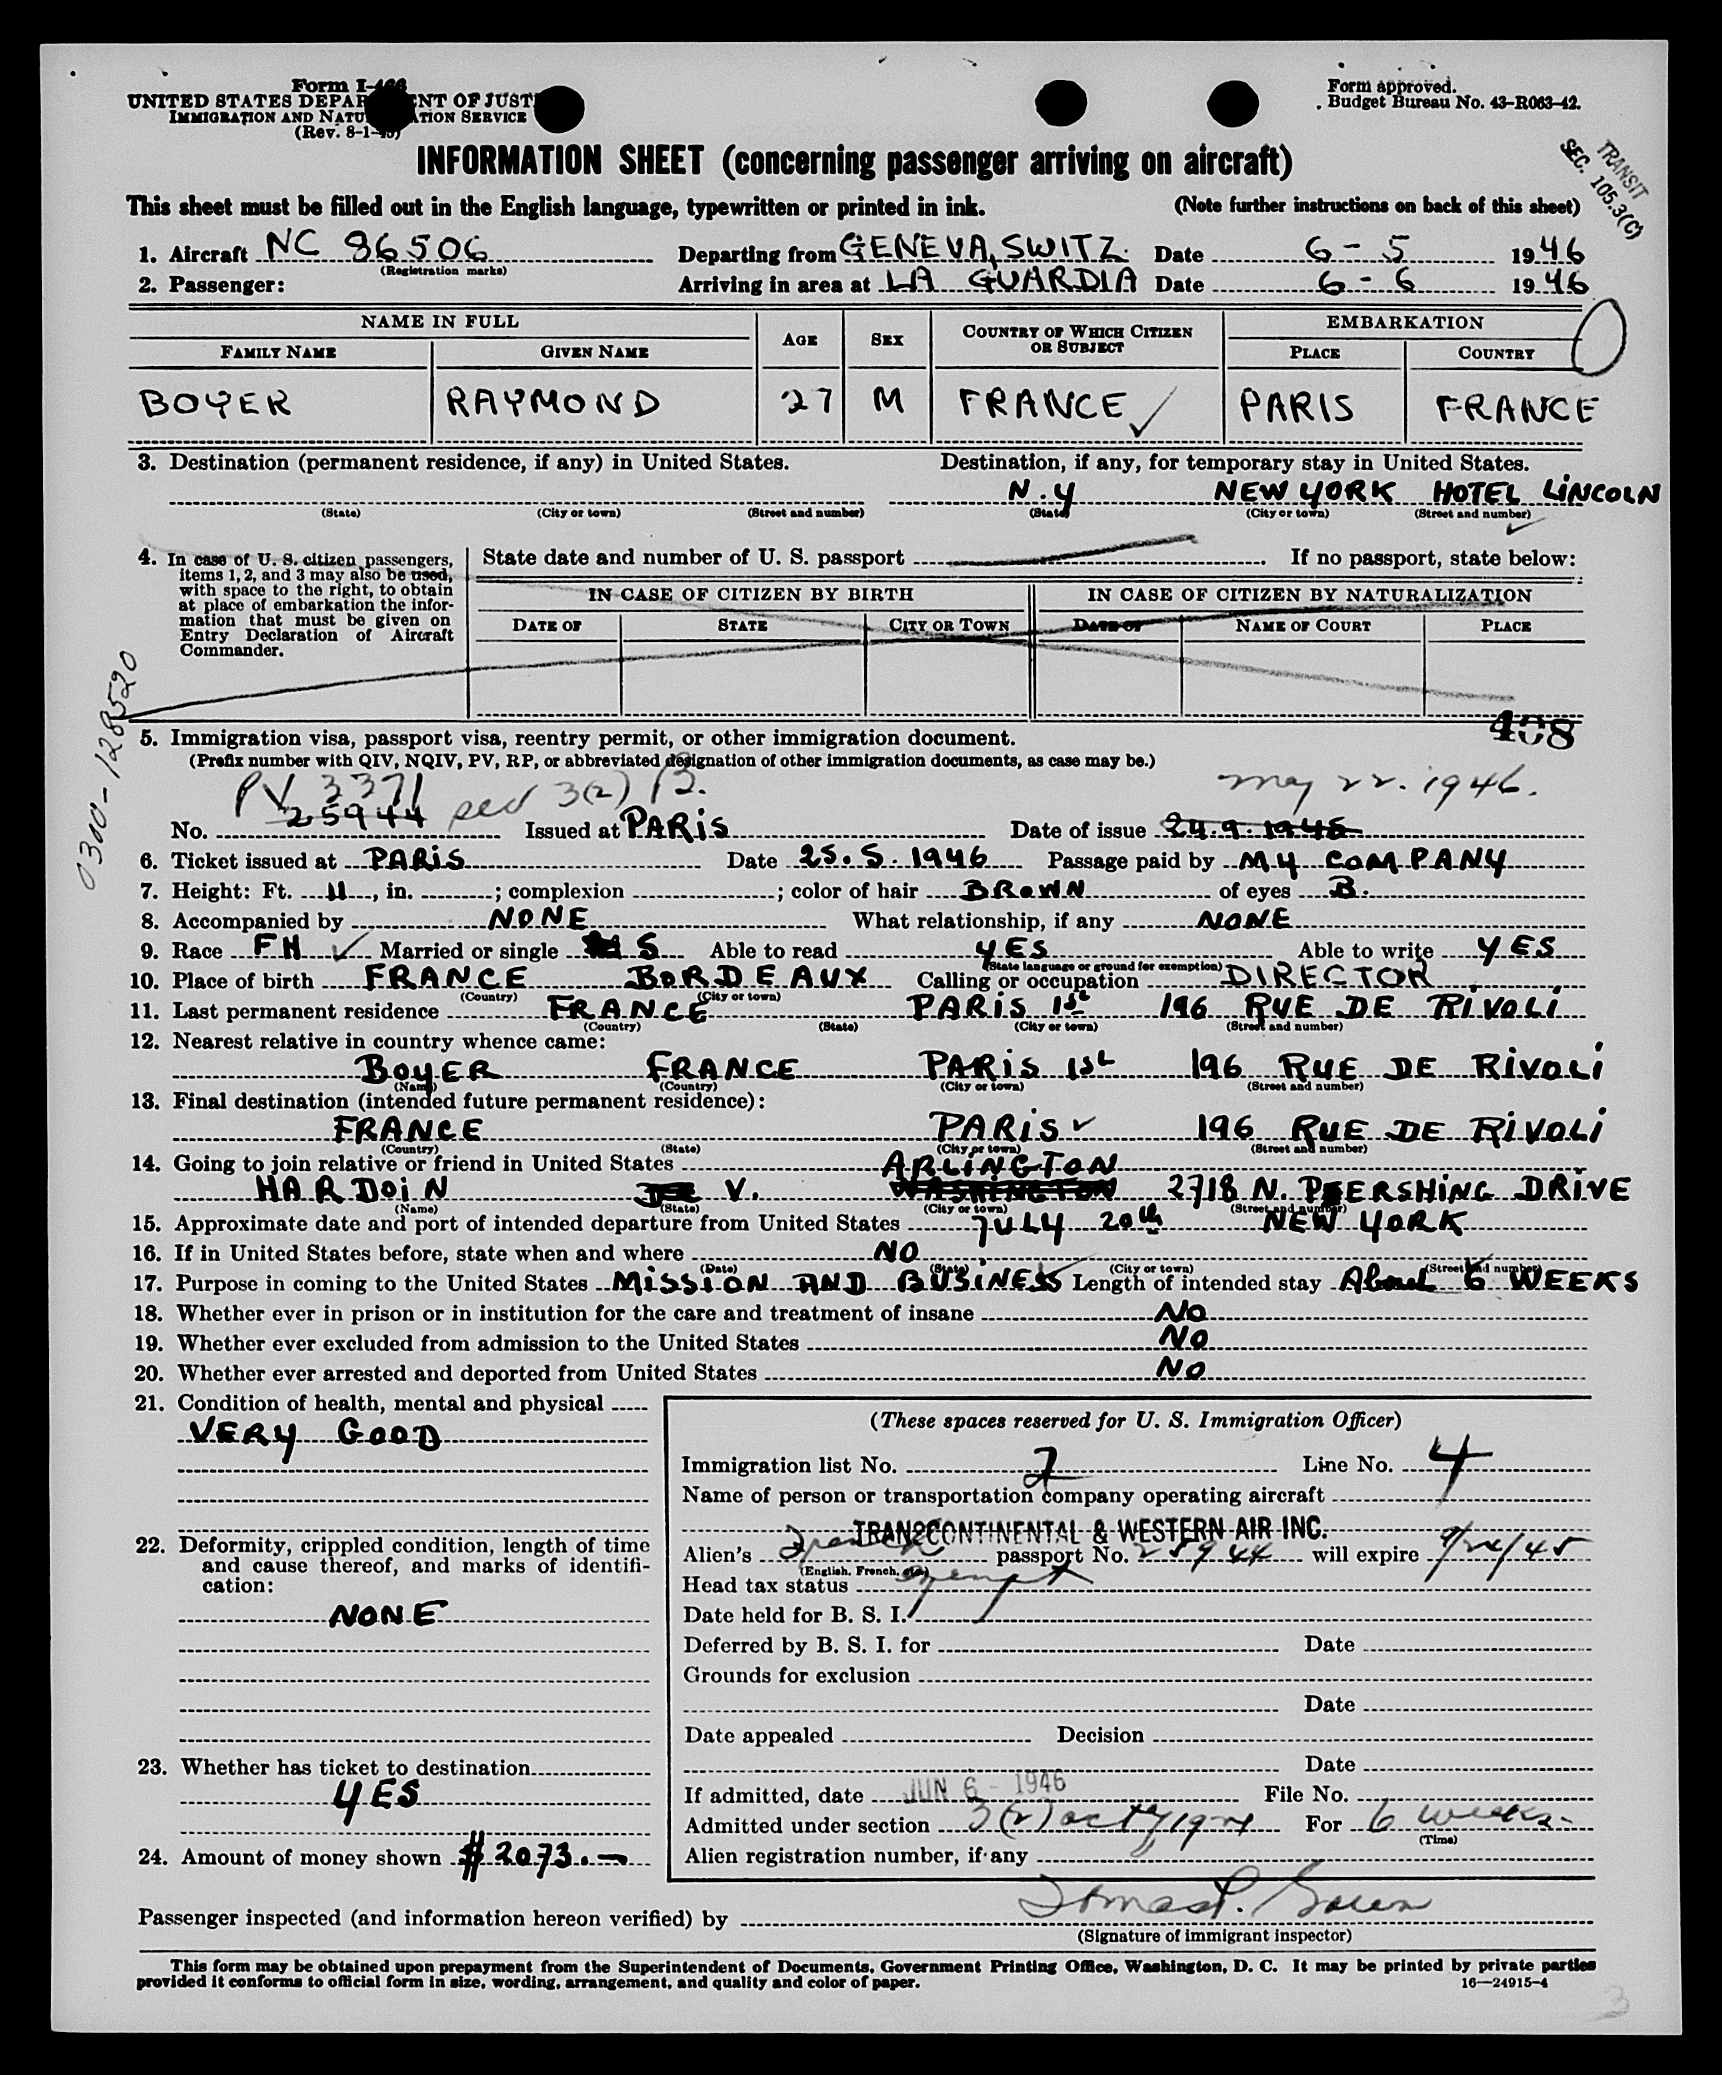 Form I-466
UNITED STATES DEPARTMENT OF JUSTICE
IMMIGRATION AND NATURALIZATION SERVICE
(Rev. 8-1-45)
Form approved.
Budget Bureau No. 43-R063-42.
TRANSIT
SEC. 105.3(C)
INFORMATION SHEET (concerning passenger arriving on aircraft)
This sheet must be filled out in the English language, typewritten or printed in ink. (Note further instructions on back of this sheet)
1. Aircraft NC 86506 Departing from GENEVA, SWITZ. Date 6-5 1946
(Registration marks)
2. Passenger: Arriving in area at LA GUARDIA Date 6-6 1946
NAME IN FULL AGE SEX COUNTRY OF WHICH CITIZEN OR SUBJECT EMBARKATION
FAMILY NAME GIVEN NAME PLACE COUNTRY
BOYER RAYMOND 27 M FRANCE PARIS FRANCE
3. Destination (permanent residence, if any) in United States. Destination, if any, for temporary stay in United States.
N.Y NEW YORK HOTEL LINCOLN
(State) (City or town) (Street and number) (State) (City or town) (Street and number)
4. In case of U. S. citizen passengers, items 1, 2, and 3 may also be used, with space to the right, to obtain at place of embarkation the information that must be given on Entry Declaration of Aircraft Commander.
State date and number of U. S. passport If no passport, state below:
IN CASE OF CITIZEN BY BIRTH IN CASE OF CITIZEN BY NATURALIZATION
DATE OF STATE CITY OR TOWN DATE OF NAME OF COURT PLACE
0300-128520
408
5. Immigration visa, passport visa, reentry permit, or other immigration document.
(Prefix number with QIV, NQIV, PV, RP, or abbreviated designation of other immigration documents, as case may be.)
PV 3371 sec 3(2) B. May 22. 1946.
No. 25944 Issued at PARIS Date of issue 24.9.1945
6. Ticket issued at PARIS Date 25.5.1946 Passage paid by MY COMPANY
7. Height: Ft. 11, in. ; complexion ; color of hair BROWN of eyes B.
8. Accompanied by NONE What relationship, if any NONE
9. Race FH Married or single S Able to read YES Able to write YES
(State language or ground for exemption)
10. Place of birth FRANCE BORDEAUX Calling or occupation DIRECTOR
(Country) (City or town)
11. Last permanent residence FRANCE PARIS 1st 196 RUE DE RIVOLI
(Country) (State) (City or town) (Street and number)
12. Nearest relative in country whence came:
BOYER FRANCE PARIS 1st 196 RUE DE RIVOLI
(Name) (Country) (City or town) (Street and number)
13. Final destination (intended future permanent residence):
FRANCE PARIS 196 RUE DE RIVOLI
(Country) (State) (City or town) (Street and number)
14. Going to join relative or friend in United States ARLINGTON
HARDOIN V. WASHINGTON 2718 N. PERSHING DRIVE
(Name) (State) (City or town) (Street and number)
15. Approximate date and port of intended departure from United States JULY 20th NEW YORK
16. If in United States before, state when and where NO
(Date) (State) (City or town) (Street and number)
17. Purpose in coming to the United States MISSION AND BUSINESS Length of intended stay About 6 WEEKS
18. Whether ever in prison or in institution for the care and treatment of insane NO
19. Whether ever excluded from admission to the United States NO
20. Whether ever arrested and deported from United States NO
21. Condition of health, mental and physical
VERY GOOD
22. Deformity, crippled condition, length of time and cause thereof, and marks of identification:
NONE
23. Whether has ticket to destination
YES
24. Amount of money shown $2073.—
(These spaces reserved for U. S. Immigration Officer)
Immigration list No. 2 Line No. 4
Name of person or transportation company operating aircraft
TRANSCONTINENTAL & WESTERN AIR INC.
Alien's French passport No. 25944 will expire 9/24/45
(English, French, etc.)
Head tax status exempt
Date held for B. S. I.
Deferred by B. S. I. for Date
Grounds for exclusion
Date
Date appealed Decision
Date
If admitted, date JUN 6 - 1946 File No.
Admitted under section 3(2) act of 1924 For 6 weeks
(Time)
Alien registration number, if any
Passenger inspected (and information hereon verified) by
(Signature of immigrant inspector)
This form may be obtained upon prepayment from the Superintendent of Documents, Government Printing Office, Washington, D. C. It may be printed by private parties
provided it conforms to official form in size, wording, arrangement, and quality and color of paper. 16—24915-4
3